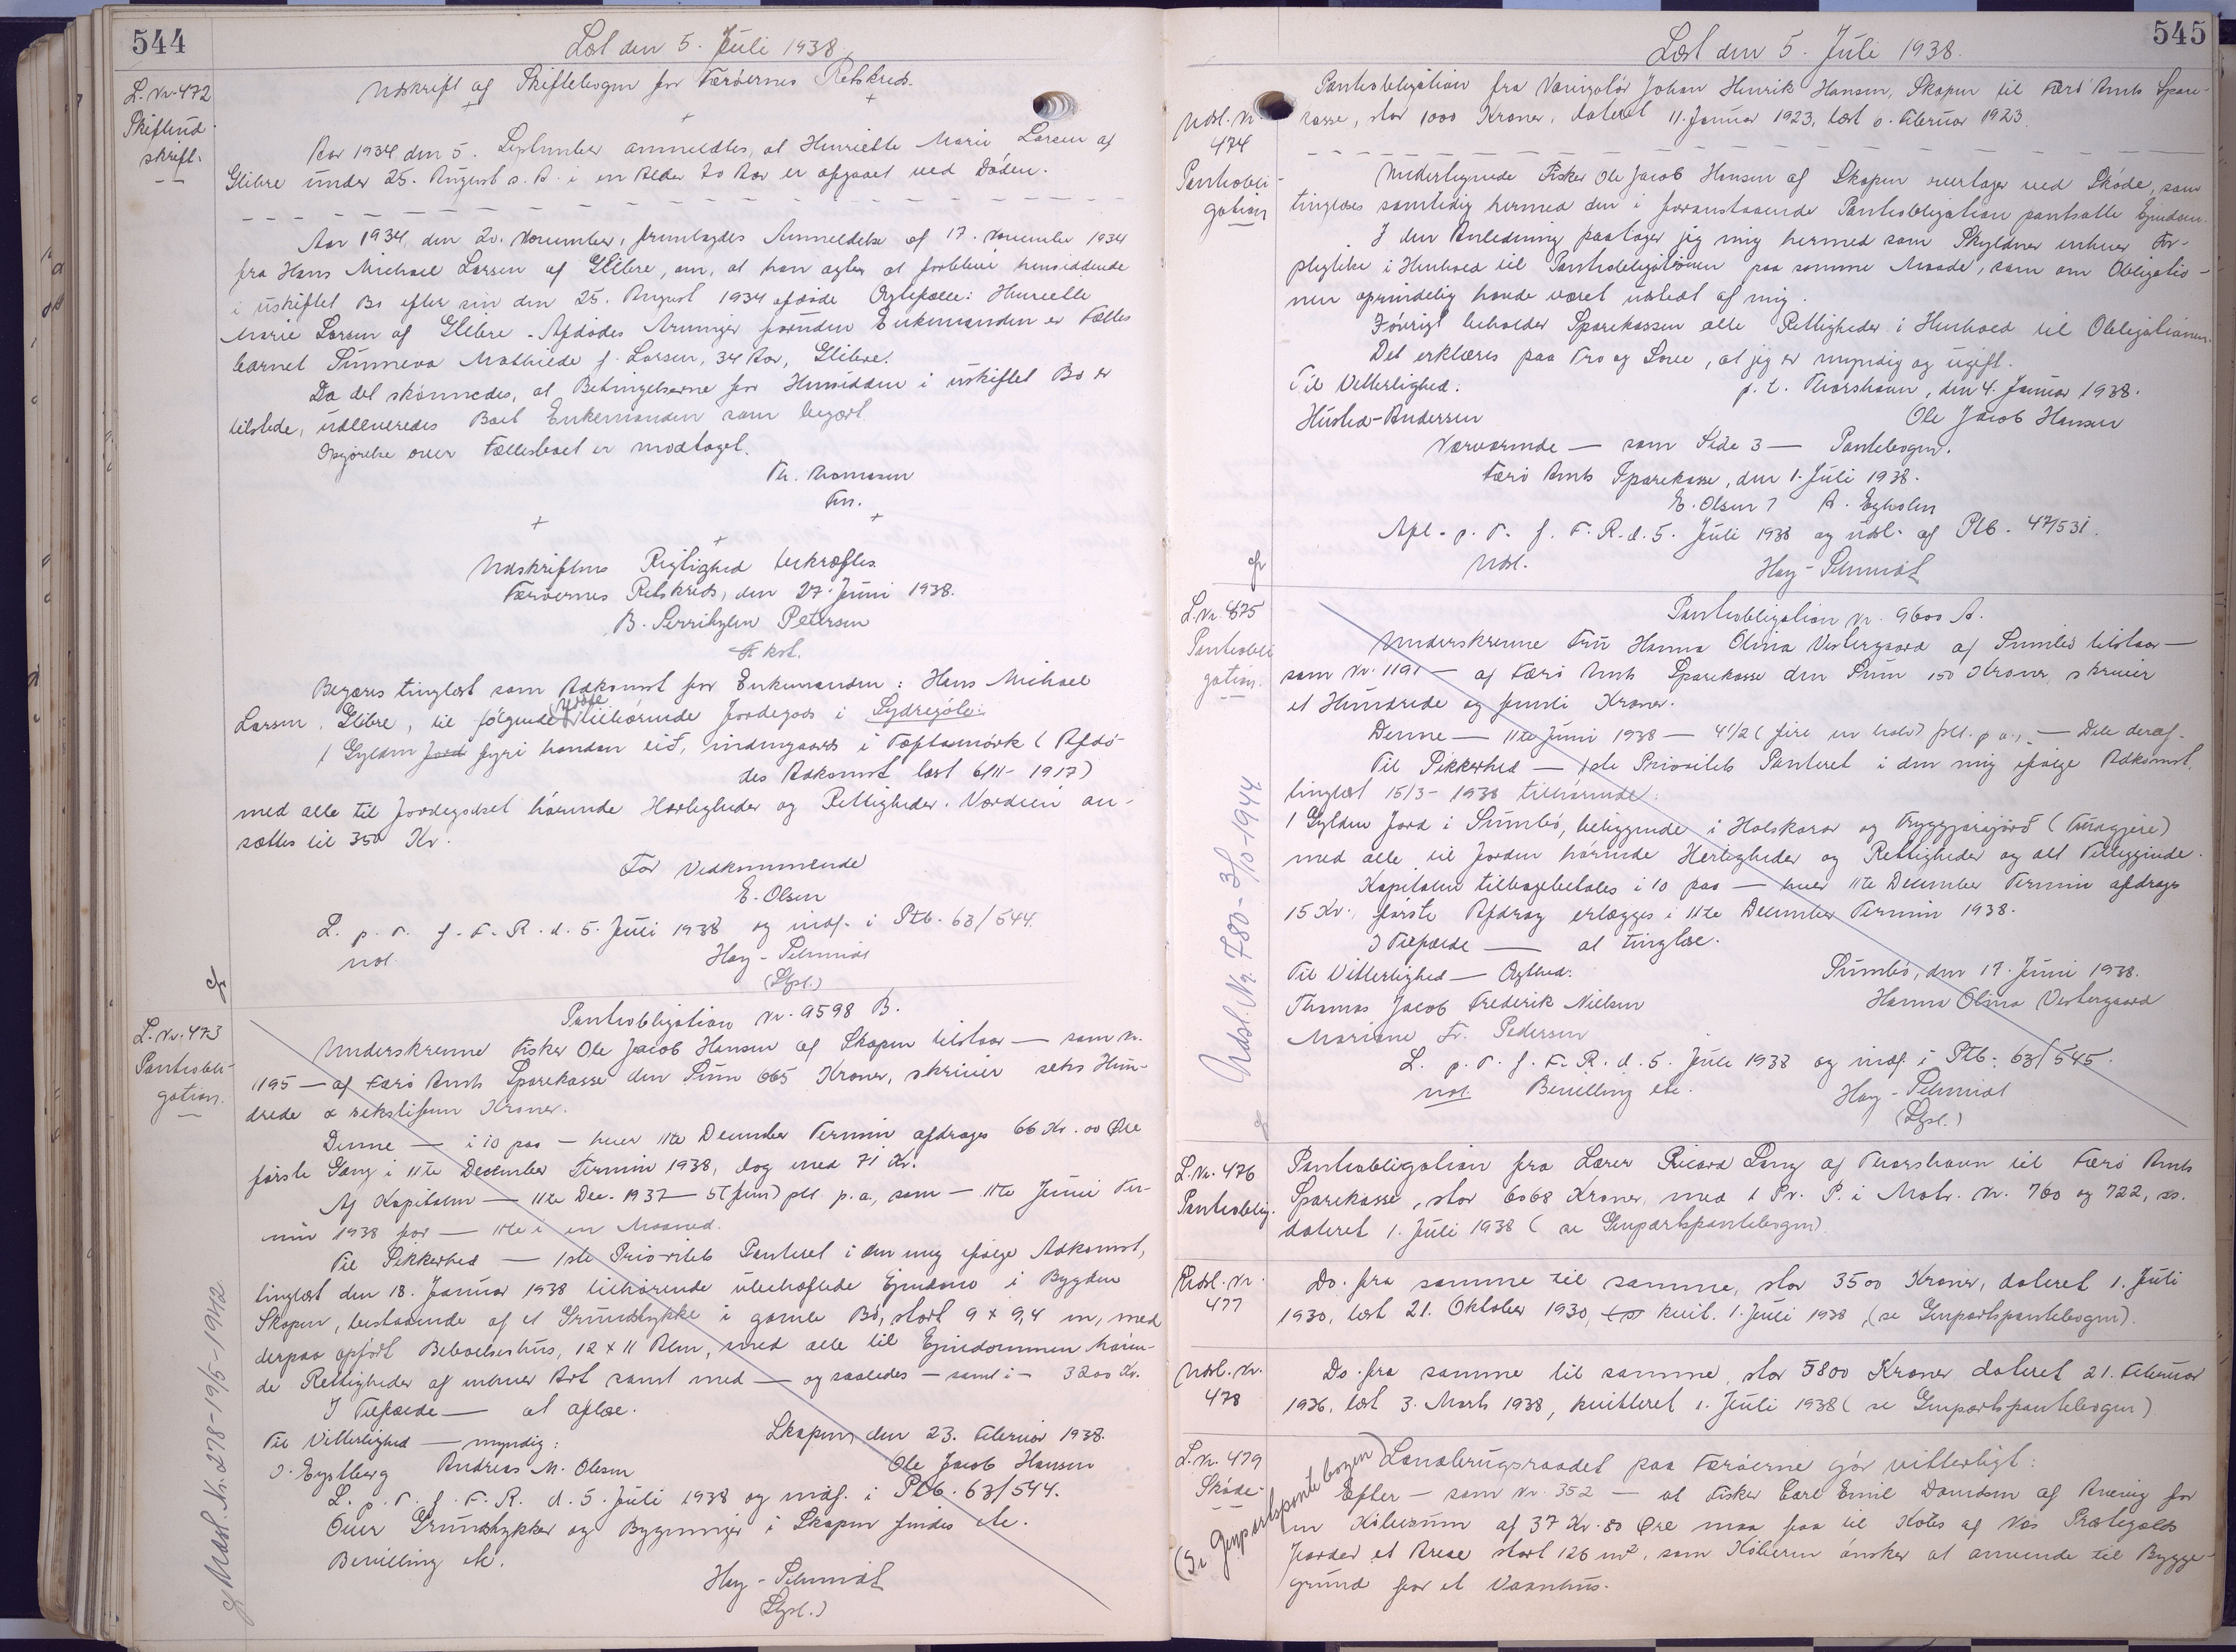 544
Læst den 5. Juli 1938.
L. Nr. 472
Skifteud-
skrift.
Udskrift af Skiftebogen for Færøernes Retskreds.
Aar 1934 den 5. September anmeldtes, at Henriette Marie Larsen af
Glibre under 25. August s. A. i en Alder 70 Aar er afgaaet ved Døden.
Aar 1934, den 20. November, fremlagdes Anmeldelse af 17. November 1934
fra Hans Michael Larsen af Glibre, om, at han agter at forblive hensiddende
i uskiftet Bo efter sin den 25. August 1934 afdøde Ægtefælle: Henriette
Marie Larsen af Glibre - Afdødes Arvinger foruden Enkemanden er Fælles
barnet Sunneva Mathilde f. Larsen, 34 Aar, Glibre.
Da det skønnedes, at Betingelserne for Hensidden i uskiftet Bo er
tilstede, udleveredes Boet Enkemanden som begært.
Opgørelse over Fællesboet er modtaget.
Th. Thomasen
Fm.
Udskriftens Rigtighed bekræftes.
Færøernes Retskreds, den 27. Juni 1938.
B. Serritzlew Petersen
kst.
Begæres tinglæst som Adkomst for Enkemanden: Hans Michael
Larsen, Glibre, til følgende Afdøde tilhørende Jordegods i Sydregöte:
1 Gylden Jord fyri handan eið, indmgaards i Toftamørk (Afdø-
des Adkomst læst 6/11-1917)
med alle til Jordegodset hørende Herligheder og Rettigheder. Værdien an-
sættes til 350 Kr.
For Vedkommende
E. Olsen
L. p. T. f. F. R. d. 5. Juli 1938 og indf. i Ptb. 63/544.
not.
Hay-Schmidt
(Stpl.)
L. Nr. 473
Pantobli-
gation.
Pantobligation Nr. 9598 B.
Underskrevne Fisker Ole Jacob Hansen af Skopun tilstaar — som Nr.
1195 — af Færø Amts Sparekasse den Sum 665 Kroner, skriver seks Hun-
drede & sekstifem Kroner.
Denne — i 10 paa — hver 11te December Termin afdrages 66 Kr. 00 Øre
første Gang i 11te December Termin 1938, dog med 71 Kr.
Af Kapitalen — 11te Dec. 1937 — 5 (fem) pCt. p. a., som — 11te Juni Ter-
min 1938 for — 11te i en Maaned.
Til Sikkerhed — 1ste Prioritets Panteret i den mig ifølge Adkomst,
tinglæst den 18. Januar 1938 tilhørende ubehæftede Ejendom i Bygden
Skopun, bestaaende af et Grundstykke i gamle Bø, stort 9 x 9,4 m, med
derpaa opført Beboelseshus, 12 x 11 Alen, med alle til Ejendommen høren-
de Rettigheder af enhver Art samt med — og saaledes — samt i — 3200 Kr.
I Tilfælde — at aflæse.
Til Vitterlighed — myndig:
Skopun, den 23. Februar 1938.
J. Eystberg Andreas M. Olesen
Ole Jacob Hansen
L. p. T. f. F. R. d. 5. Juli 1938 og indf. i Ptb. 63/544.
Over Grundstykker og Bygninger i Skopun findes etc.
Bevilling etc.
Hay-Schmidt
(Stpl.)
Udsl. Nr. 278-19/5-1942
545
Læst den 5. Juli 1938.
Udsl. Nr.
474
Pantobli-
gation
Pantobligation fra Navigatør Johan Henrik Hansen, Skopun til Færø Amts Spare-
kasse, stor 1000 Kroner, dateret 11. Januar 1923, læst 6. Februar 1923.
Undertegnede Fisker Ole Jacob Hansen af Skopun overtager ved Skøde, som
tinglæses samtidig hermed den i foranstaaende Pantobligation pantsatte Ejendom.
I den Anledning paatager jeg mig hermed som Skyldner enhver For-
pligtelse i Henhold til Pantobligationen paa samme Maade, som om Obligatio-
nen oprindelig havde været udstedt af mig.
Iøvrigt beholder Sparekassen alle Rettigheder i Henhold til Obligationen.
Det erklæres paa Tro og Love, at jeg er myndig og ugift.
Til Vitterlighed:
p. t. Thorshavn, den 4. Januar 1938.
Husted-Andersen
Ole Jacob Hansen
Nærværende — som Side 3 — Pantebogen.
Færø Amts Sparekasse, den 1. Juli 1938.
E. Olsen / A. Egholm
Afl. p. T. f. F. R. d. 5. Juli 1938 og udsl. af Ptb. 47/531.
Udsl.
Hay-Schmidt
L. Nr. 475
Pantobli
gation.
Pantobligation Nr. 9600 A.
Underskrevne Fru Hanna Olina Vestergaard af Sumbø tilstaar —
som Nr. 1191 — af Færø Amts Sparekasse den Sum 150 Kroner, skriver
et Hundrede og femti Kroner.
Denne — 11te Juni 1938 — 4 1/2 (fire en halv) pCt. p. a., — Dele deraf.
Til Sikkerhed — 1ste Prioritets Panteret i den mig ifølge Adkomst,
tinglæst 15/3-1938 tilhørende:
1 Gylden Jord i Sumbø, beliggende i Holskarar og Tryggjarajørð (Tundgjere)
med alle til Jorden hørende Herligheder og Rettigheder og alt Tilliggende.
Kapitalen tilbagebetales i 10 paa — hver 11te December Termin afdrages
15 Kr., første Afdrag erlægges i 11te December Termin 1938.
I Tilfælde — at tinglæse.
Til Vitterlighed — Ægthed:
Sumbø, den 17. Juni 1938.
Thomas Jacob Frederik Nielsen
Hanna Olina Vestergaard
Mariane Fr. Pedersen
L. p. T. f. F. R. d. 5. Juli 1938 og indf. i Ptb. 63/545.
not. Bevilling etc.
Hay-Schmidt
(Stpl.)
Udsl. Nr. 780-3/10-1944
L. Nr. 476
Pantoblig.
Pantobligation fra Lærer Ricard Long af Thorshavn til Færø Amts
Sparekasse, stor 6068 Kroner, med 1 Pr. P. i Matr. Nr. 760 og 722, ss.
dateret 1. Juli 1938 (se Genpartspantebogen).
Udsl. Nr.
477
Do. fra samme til samme, stor 3500 Kroner, dateret 1. Juli
1930, læst 21. Oktober 1930, kvit. 1. Juli 1938, (se Genpartspantebogen).
Udsl. Nr.
478
Do. fra samme til samme, stor 5800 Kroner dateret 21. Februar
1936, læst 3. Marts 1938, kvitteret 1. Juli 1938 (se Genpartspantebogen)
L. Nr. 479
Skøde.
(Se Genpartspantebogen)
Landbrugsraadet paa Færøerne gør vitterligt:
Efter — som Nr. 352 — at Fisker Carl Emil Davidsen af Rvavig for
en Købesum af 37 Kr. 80 Øre maa faa til Købs af Nøs Præstegølds
Jorder et Areal stort 126 m², som Køberen ønsker at anvende til Bygge-
grund for et Vaanhus.